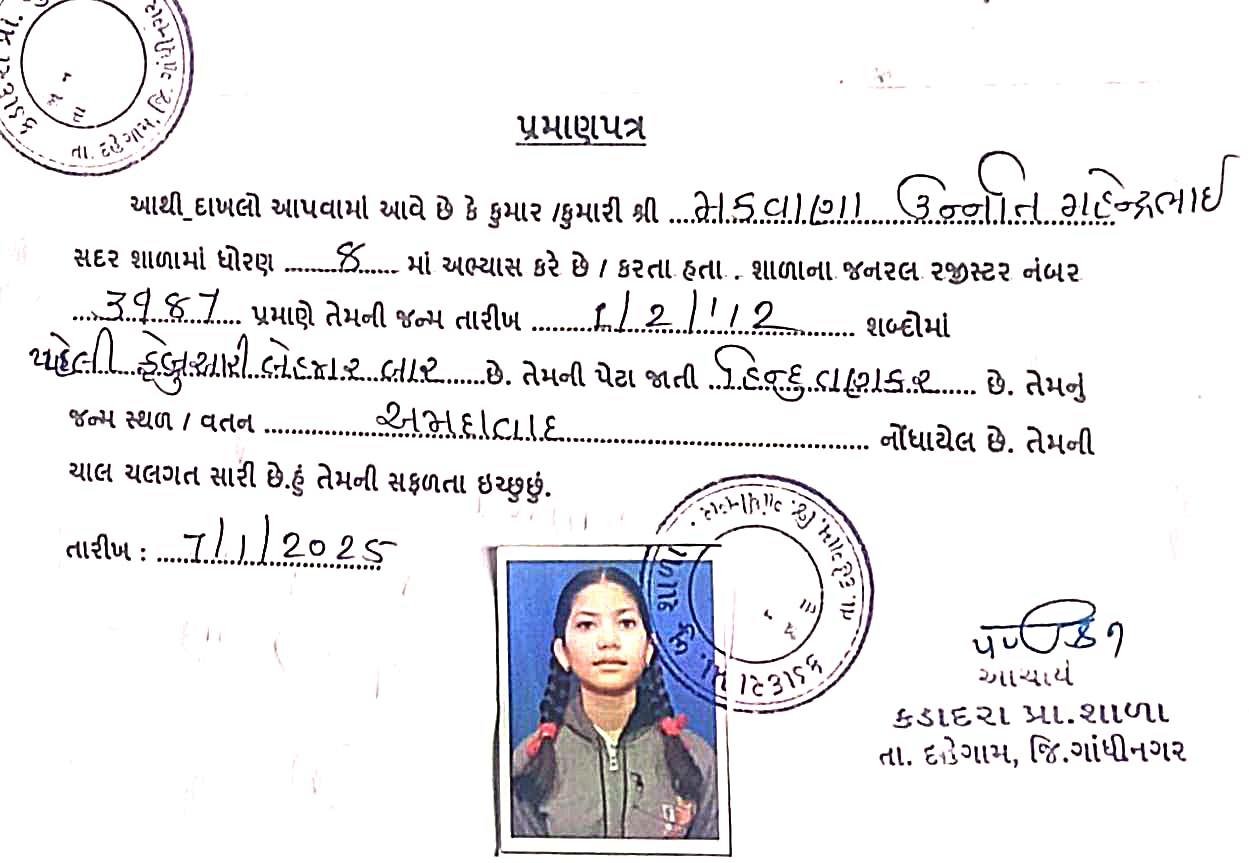 કડાદરા પ્રા.
તા. દહેગામ, જી. ગાંધીનગર
પ્રમાણપત્ર
આથી દાખલો આપવામાં આવે છે કે કુમાર /કુમારી શ્રી ...મકવાણા ઉન્નતિ મહેન્દ્રભાઈ
સદર શાળામાં ધોરણ ........8...... માં અભ્યાસ કરે છે / કરતા હતા . શાળાના જનરલ રજીસ્ટર નંબર
....3987.... પ્રમાણે તેમની જન્મ તારીખ ..........1/2/'12............ શબ્દોમાં
પહેલી ફેબ્રુઆરી બેહજાર બાર......છે. તેમની પેટા જાતી ...હિન્દુ વણકર...... છે. તેમનું
જન્મ સ્થળ / વતન ................અમદાવાદ.......................................... નોંધાયેલ છે. તેમની
ચાલ ચલગત સારી છે.હું તેમની સફળતા ઇચ્છુછું.
તારીખ : ....7/1/2025
શાળા
કડાદરા પ્રા.
તા. દહેગામ, જી. ગાંધીનગર
આચાર્ય
કડાદરા પ્રા.શાળા
તા. દહેગામ, જિ.ગાંધીનગર